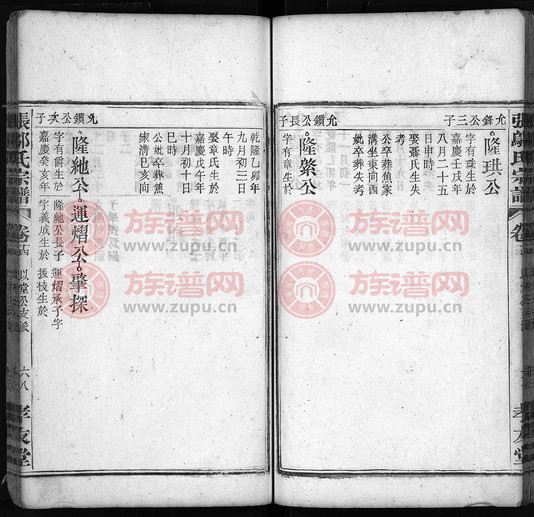 允鋒公三子
隆珙公
字有珠生於
嘉慶壬戌年
八月二十五
日申時
娶聶氏生失
考
公卒葬焦家
溝坐東向西
妣卒葬失考
允鎖公長子
隆縈公
字有章生於
乾隆乙卯年
九月初三日
午時
娶章氏生於
嘉慶戊午年
十月初十日
巳時
公妣卒葬焦
家溝巳亥向
允鎖公次子
隆紪公 運熠公 肇探
字有爵生於 隆紪公長子 運熠承子字
嘉慶癸亥年 字義成生於 振枝生於
張鄔氏宗譜
卷十四
以堂公支派
六八
孝友堂
族谱网
www.zupu.cn
族谱网
www.zupu.cn
族谱网
www.zupu.cn
族谱网
www.zupu.cn